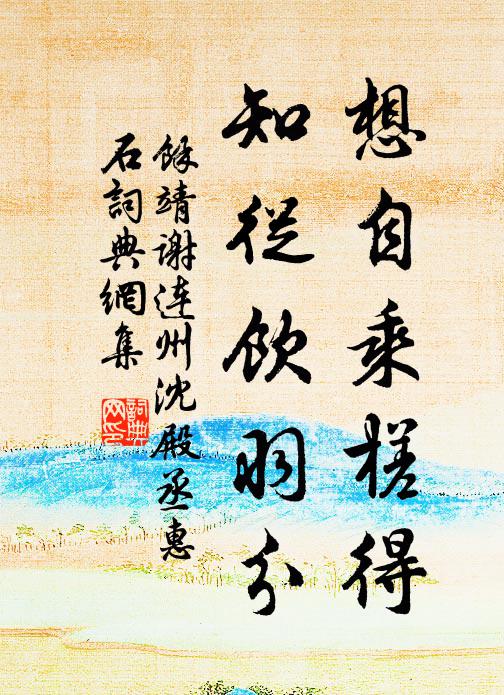 想自乘槎得
知從飲羽分
餘靖謝連州沈殿丞惠
石詞典網集
詞典網印